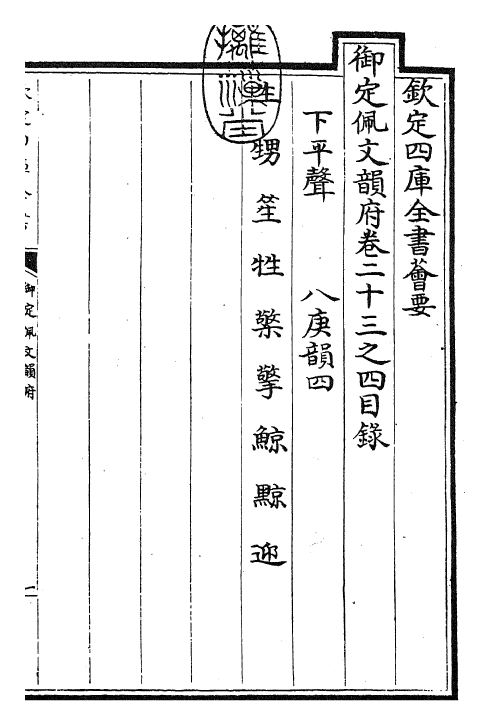 欽定四庫全書薈要
御定佩文韻府卷二十三之四目錄
下平聲　　八庚韻四
生 甥 笙 牲 檠 擎 鯨 黥 迎
御定佩文韻府
一